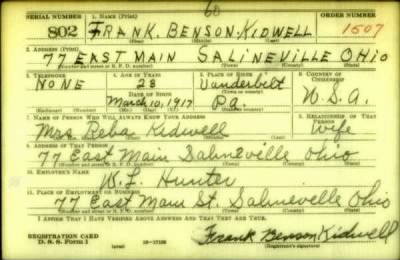 60
SERIAL NUMBER 1. NAME (Print)
802 FRANK. BENSON. KIDWELL 1507
2. ADDRESS (Print)
77 EAST MAIN SALINEVILLE OHIO
3. TELEPHONE 4. AGE IN YEARS 5. PLACE OF BIRTH 6. COUNTRY OF CITIZENSHIP
NONE 28 Vanderbilt
DATE OF BIRTH
March, 10, 1917 Pa. U.S.A.
7. NAME OF PERSON WHO WILL ALWAYS KNOW YOUR ADDRESS 8. RELATIONSHIP OF THAT PERSON
Mrs Reba Kidwell Wife
9. ADDRESS OF THAT PERSON
77 East Main Salineville Ohio
10. EMPLOYER'S NAME
W. L. Hunter
11. PLACE OF EMPLOYMENT OR BUSINESS
77 East Main St. Salineville Ohio
I AFFIRM THAT I HAVE VERIFIED ABOVE ANSWERS AND THAT THEY ARE TRUE.
REGISTRATION CARD
D. S. S. Form 1 Frank Benson Kidwell
(Registrant's signature)